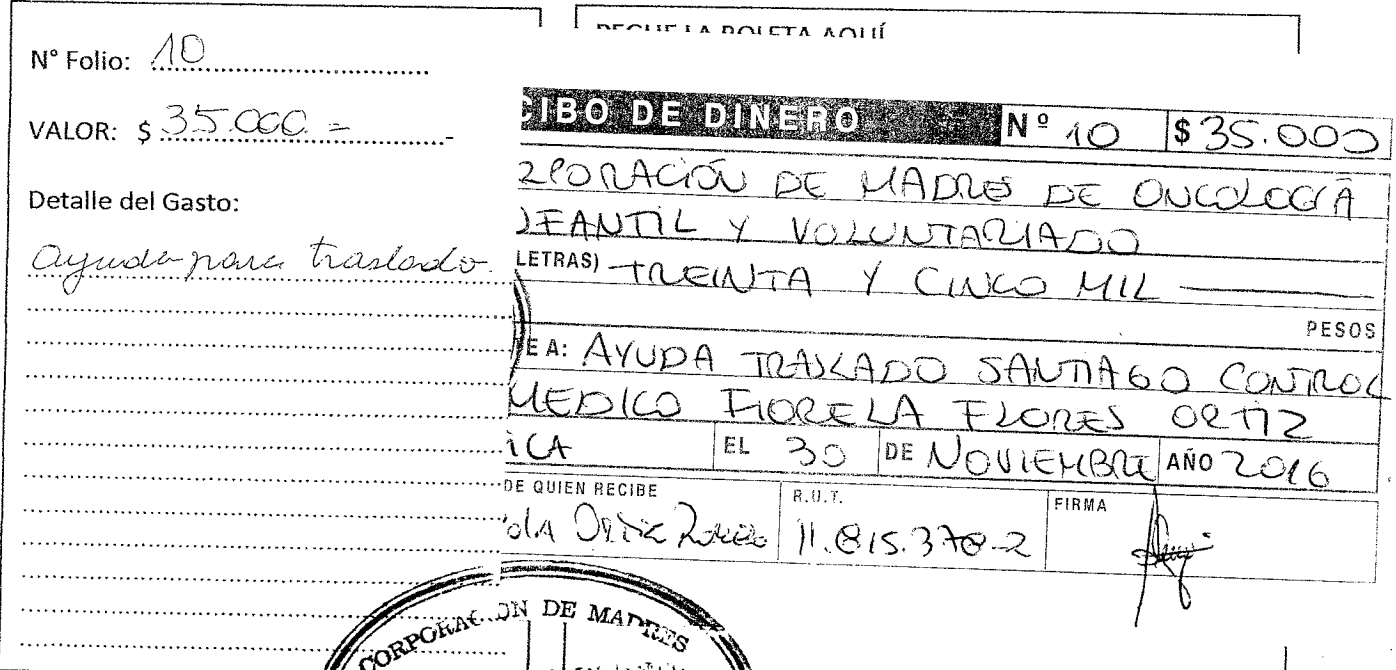 N° Folio: 10
VALOR: $ 35.000 = -
Detalle del Gasto:
ayuda para traslado.
PEGUE LA BOLETA AQUÍ
CIBO DE DINERO Nº 10 $ 35.000
RPORACIÓN DE MADRES DE ONCOLOGÍA
NFANTIL Y VOLUNTARIADO
LETRAS) TREINTA Y CINCO MIL
PESOS
E A: AYUDA TRASLADO SANTIAGO CONTROL
MEDICO FIORELA FLORES ORTIZ
ICA EL 30 DE NOVIEMBRE AÑO 2016
DE QUIEN RECIBE R.U.T. FIRMA
ola Ortiz 11.815.378-2
CORPORACION DE MADRES